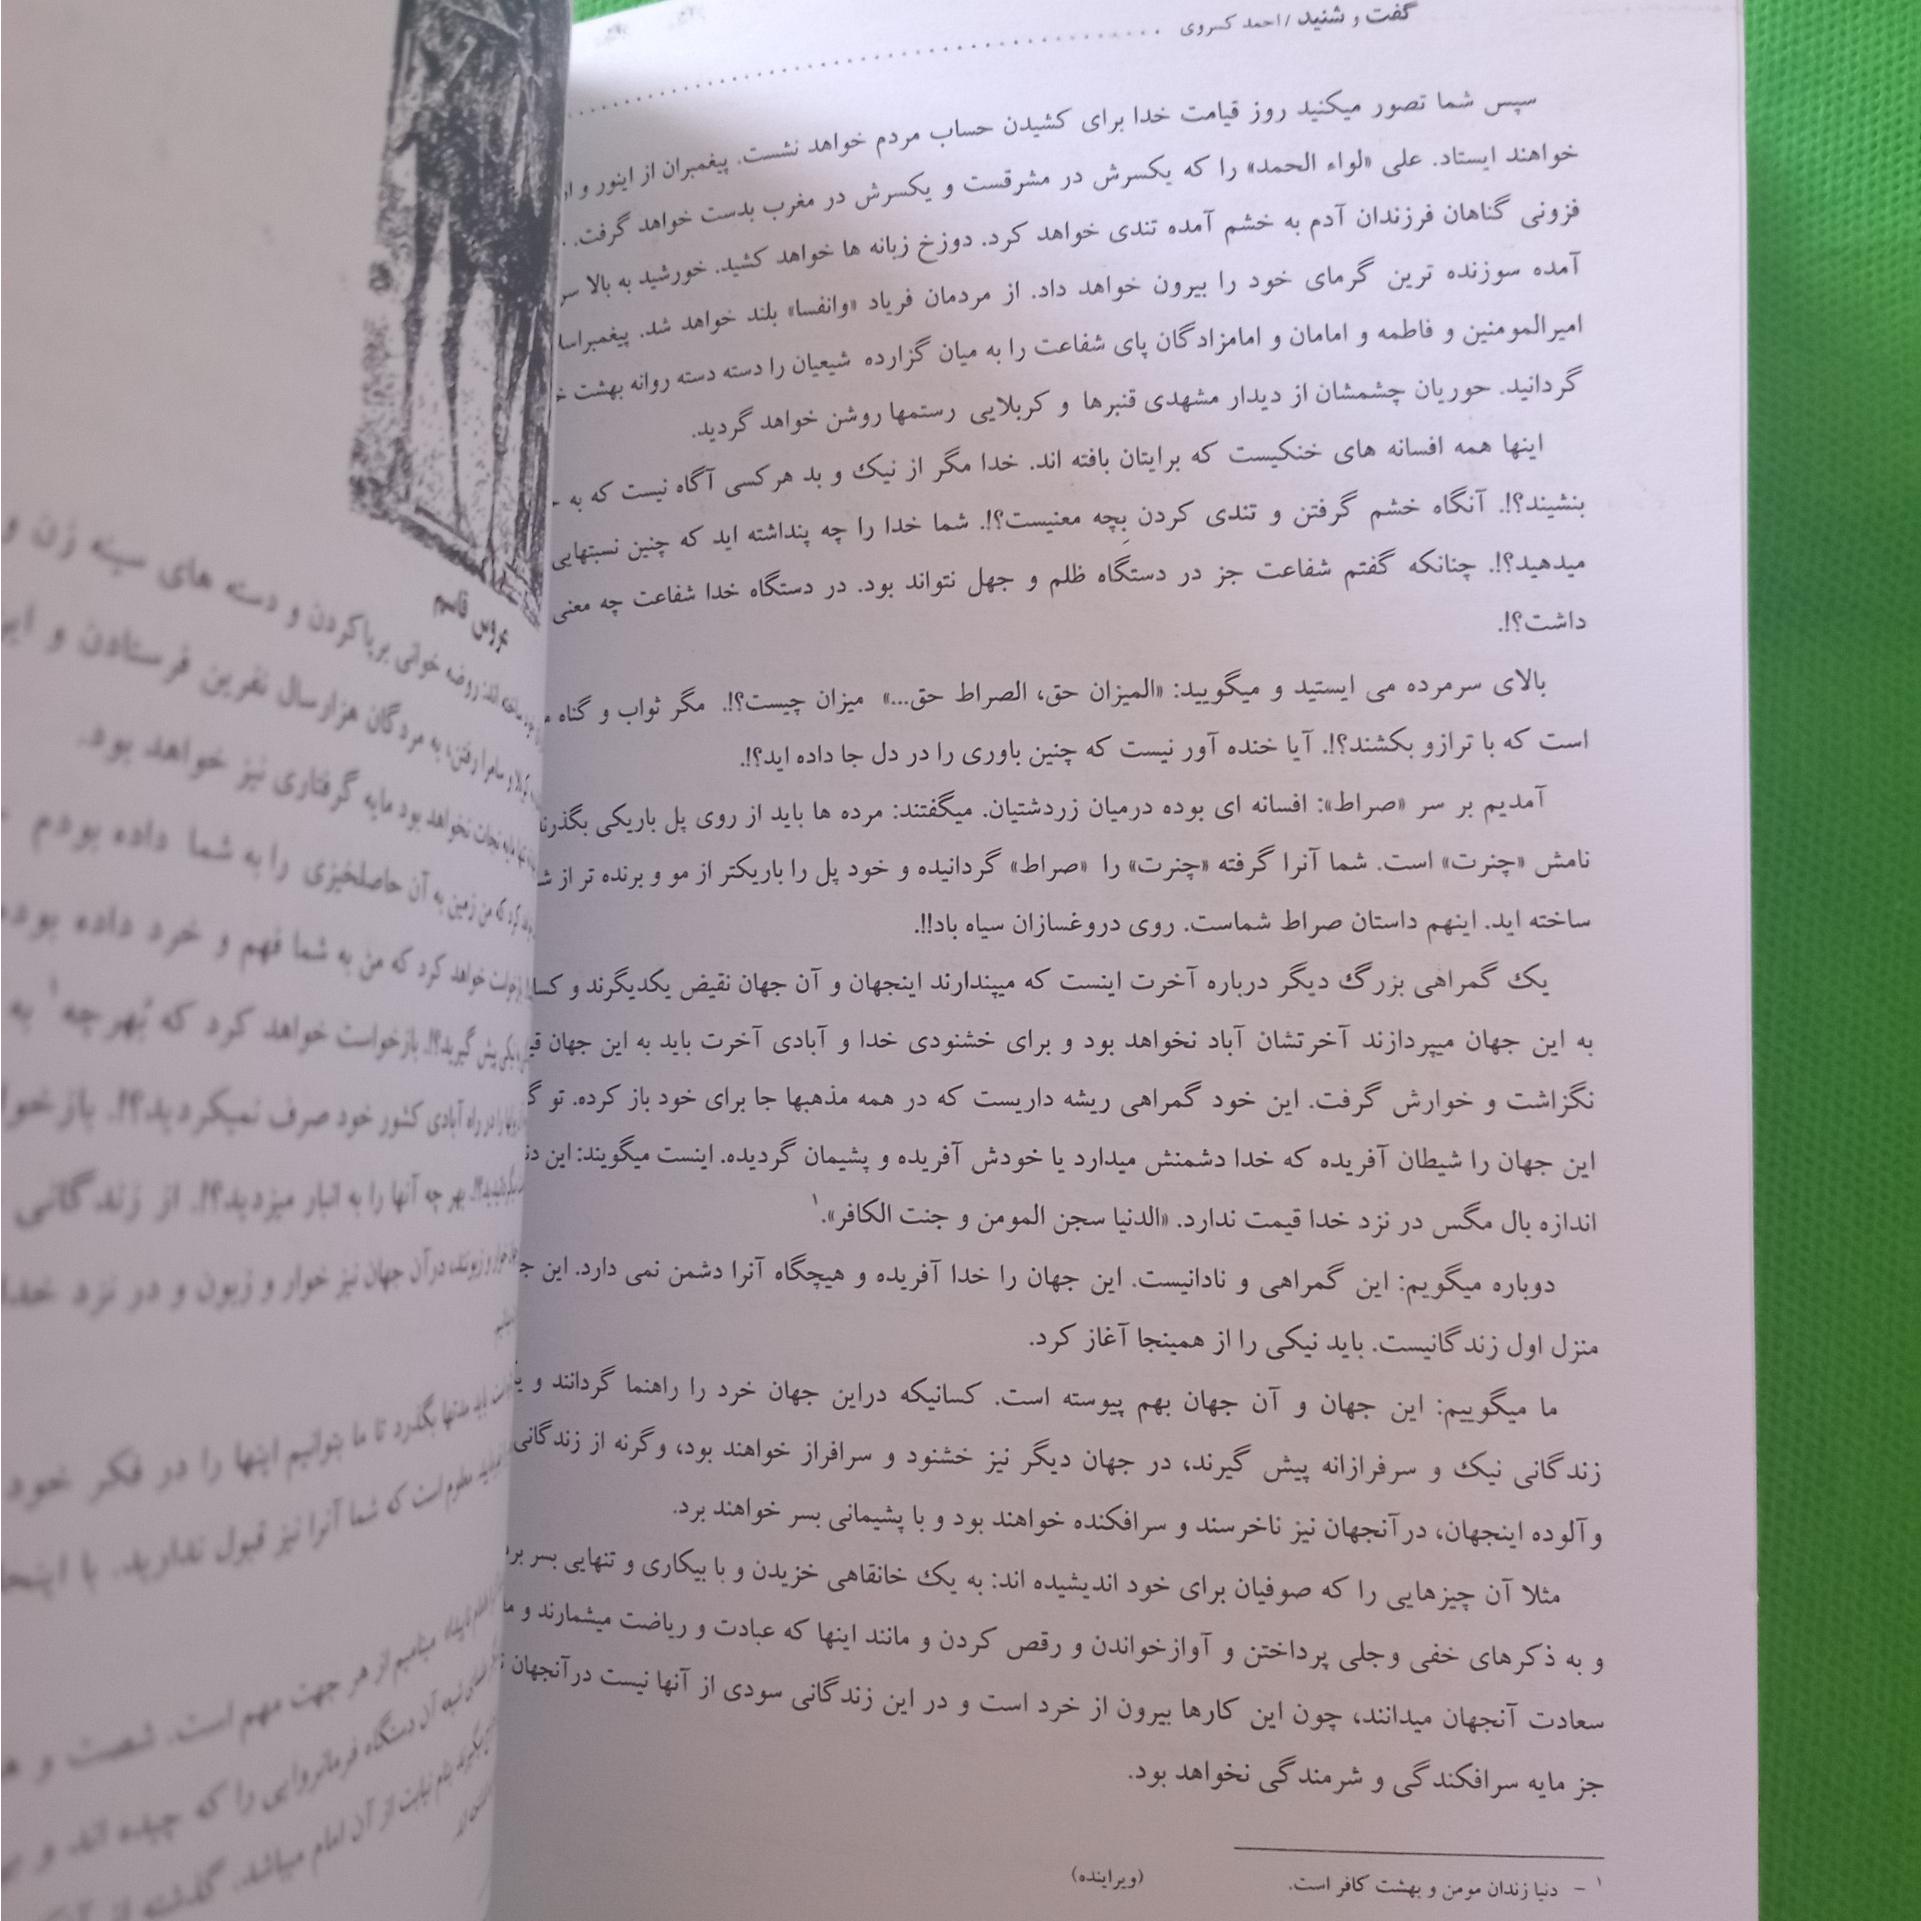 گفت و شنید / احمد کسروی
سپس شما تصور میکنید روز قیامت خدا برای کشیدن حساب مردم خواهد نشست. پیغمبران از اینور و
خواهند ایستاد. علی «لواء الحمد» را که یکسرش در مشرقست و یکسرش در مغرب بدست خواهد گرفت.
فزونی گناهان فرزندان آدم به خشم آمده تندی خواهد کرد. دوزخ زبانه ها خواهد کشید. خورشید به بالا
آمده سوزنده ترین گرمای خود را بیرون خواهد داد. از مردمان فریاد «وانفسا» بلند خواهد شد.
امیرالمومنین و فاطمه و امامان و امامزادگان پای شفاعت را به میان گزارده شیعیان را دسته دسته روانه بهشت
گردانید. حوریان چشمشان از دیدار مشهدی قنبرها و کربلایی رستمها روشن خواهد گردید.
اینها همه افسانه های خنکیست که برایتان بافته اند. خدا مگر از نیک و بد هرکسی آگاه نیست که به
بنشیند؟!. آنگاه خشم گرفتن و تندی کردن بِچه معنیست؟!. شما خدا را چه پنداشته اید که چنین نسبتهایی
میدهید؟!. چنانکه گفتم شفاعت جز در دستگاه ظلم و جهل نتواند بود. در دستگاه خدا شفاعت چه معنی
داشت؟!.
بالای سرمرده می ایستید و میگویید: «المیزان حق، الصراط حق...» میزان چیست؟!. مگر ثواب و گناه
است که با ترازو بکشند؟!. آیا خنده آور نیست که چنین باوری را در دل جا داده اید؟!.
آمدیم بر سر «صراط»: افسانه ای بوده درمیان زردشتیان. میگفتند: مرده ها باید از روی پل باریکی
نامش «چنرت» است. شما آنرا گرفته «چنرت» را «صراط» گردانیده و خود پل را باریکتر از مو و برنده تر از
ساخته اید. اینهم داستان صراط شماست. روی دروغسازان سیاه باد!!.
یک گمراهی بزرگ دیگر درباره آخرت اینست که میپندارند اینجهان و آن جهان نقیض یکدیگرند و
به این جهان میپردازند آخرتشان آباد نخواهد بود و برای خشنودی خدا و آبادی آخرت باید به این جهان
نگزاشت و خوارش گرفت. این خود گمراهی ریشه داریست که در همه مذهبها جا برای خود باز کرده. تو
این جهان را شیطان آفریده که خدا دشمنش میدارد یا خودش آفریده و پشیمان گردیده. اینست میگویند: این
اندازه بال مگس در نزد خدا قیمت ندارد. «الدنیا سجن المومن و جنت الکافر».۱
دوباره میگویم: این گمراهی و نادانیست. این جهان را خدا آفریده و هیچگاه آنرا دشمن نمی دارد. این
منزل اول زندگانیست. باید نیکی را از همینجا آغاز کرد.
ما میگوییم: این جهان و آن جهان بهم پیوسته است. کسانیکه دراین جهان خرد را راهنما گردانند و
زندگانی نیک و سرفرازانه پیش گیرند، در جهان دیگر نیز خشنود و سرافراز خواهند بود، وگرنه از زندگانی
وآلوده اینجهان، درآنجهان نیز ناخرسند و سرافکنده خواهند بود و با پشیمانی بسر خواهند برد.
مثلا آن چیزهایی را که صوفیان برای خود اندیشیده اند: به یک خانقاهی خزیدن و با بیکاری و تنهایی بسر
و به ذکرهای خفی وجلی پرداختن و آوازخواندن و رقص کردن و مانند اینها که عبادت و ریاضت میشمارند و
سعادت آنجهان میدانند، چون این کارها بیرون از خرد است و در این زندگانی سودی از آنها نیست درآنجهان
جز مایه سرافکندگی و شرمندگی نخواهد بود.
۱ - دنیا زندان مومن و بهشت کافر است. (ویراینده)
عروس قاسم
روضه خوانی برپاکردن و دسته های سینه زن و
به مردگان هزارسال نفرین فرستادن و
نجات نخواهد بود مایه گرفتاری نیز خواهد بود.
که من زمین به آن حاصلخیزی را به شما داده بودم
خواهد کرد که من به شما فهم و خرد داده
پیش گیرید؟!. بازخواست خواهد کرد که بَهرچه۱ به
را در راه آبادی کشور خود صرف نمیکردید؟!.
بهرچه آنها را به انبار میزدید؟!. از زندگانی
درآن جهان نیز خوار و زبون و در نزد
باید مدتها بگذرد تا ما بتوانیم اینها را در فکر خود
معلوم است که شما آنرا نیز قبول ندارید. با
مینامیم از هر جهت مهم است. شصت و
آن دستگاه فرمانروایی را که چیده اند و
بنام نیابت از آن امام میباشد. گذشته از